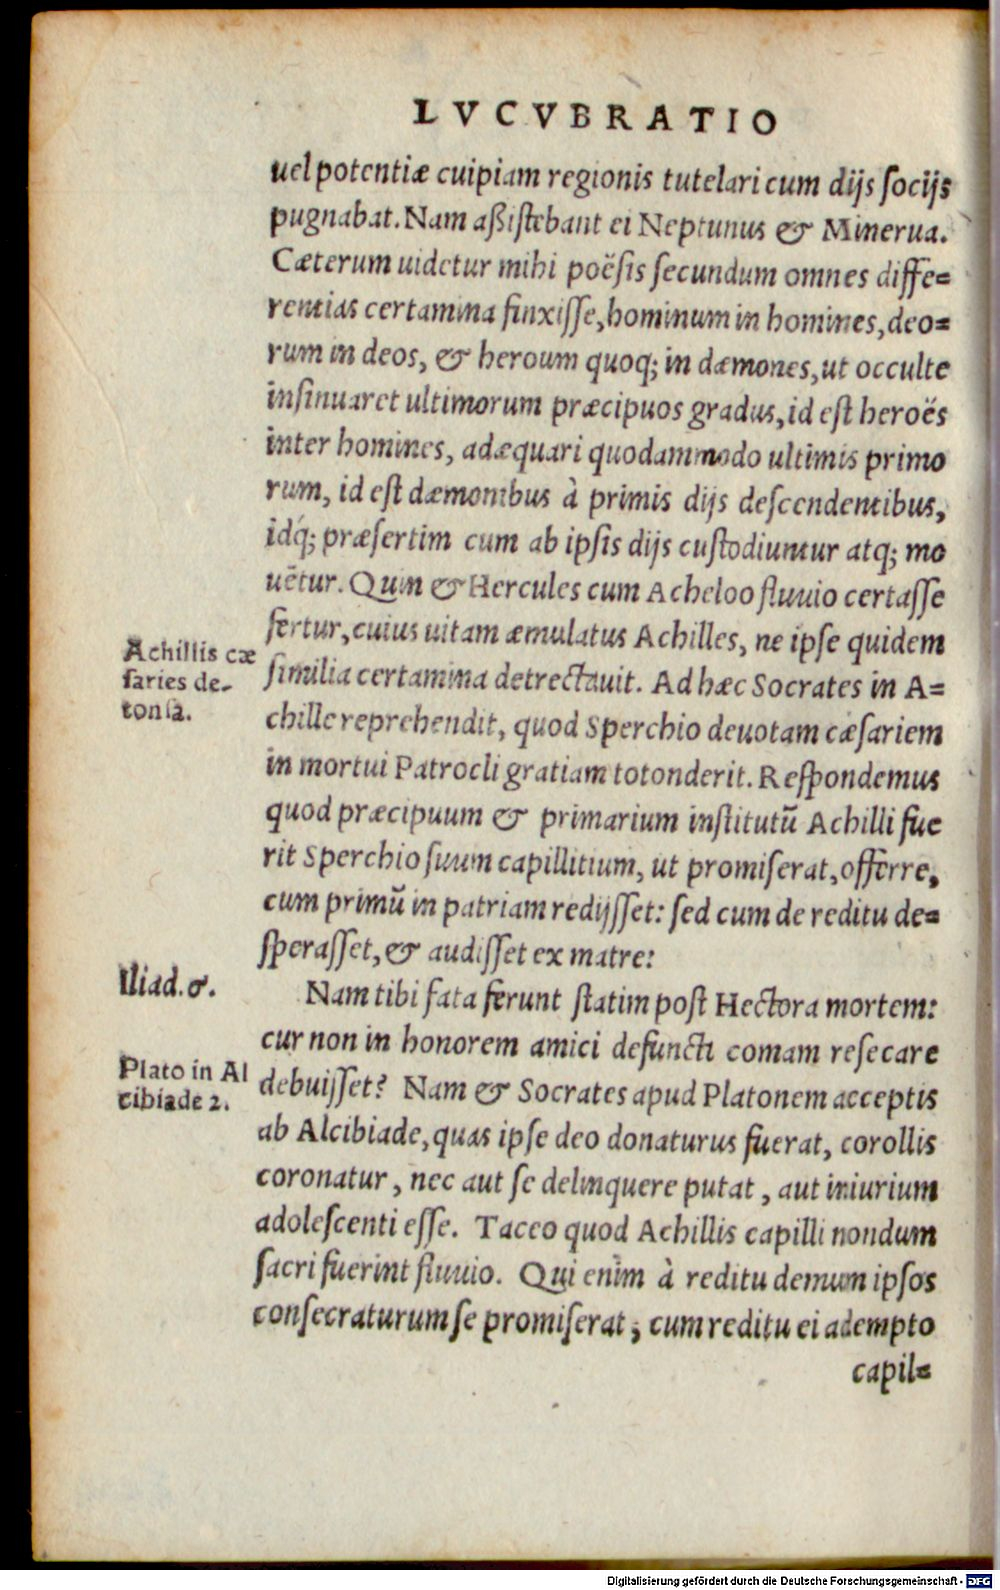 LVCVBRATIO
uel potentiæ cuipiam regionis tutelari cum dijs ſocijs
pugnabat. Nam aßiſtebant ei Neptunus & Minerua.
Cæterum uidetur mihi poëſis ſecundum omnes diffe=
rentias certamina finxiſſe, hominum in homines, deo=
rum in deos, & heroum quoq; in dæmones, ut occulte
inſinuaret ultimorum præcipuos gradus, id eſt heroës
inter homines, adæquari quodammodo ultimis primo
rum, id eſt dæmonibus à primis dijs deſcendentibus,
idq́; præſertim cum ab ipſis dijs cuſtodiuntur atq; mo
uẽtur. Quin & Hercules cum Acheloo fluuio certaſſe
fertur, cuius uitam æmulatus Achilles, ne ipſe quidem
Achillis cæ
ſaries de-
tonſa.
ſimilia certamina detrectauit. Ad hæc Socrates in A=
chille reprehendit, quod Sperchio deuotam cæſariem
in mortui Patrocli gratiam totonderit. Reſpondemus
quod præcipuum & primarium inſtitutũ Achilli fue
rit Sperchio ſuum capillitium, ut promiſerat, offerre,
cum primũ in patriam redijſſet: ſed cum de reditu de=
ſperaſſet, & audiſſet ex matre:
Iliad. σ.
Nam tibi fata ferunt ſtatim poſt Hectora mortem:
cur non in honorem amici defuncti comam reſecare
Plato in Al
cibiade 2.
debuiſſet? Nam & Socrates apud Platonem acceptis
ab Alcibiade, quas ipſe deo donaturus fuerat, corollis
coronatur, nec aut ſe delinquere putat, aut iniurium
adoleſcenti eſſe. Taceo quod Achillis capilli nondum
ſacri fuerint fluuio. Qui enim à reditu demum ipſos
conſecraturum ſe promiſerat, cum reditu ei adempto
capil=
Digitalisierung gefördert durch die Deutsche Forschungsgemeinschaft - DFG